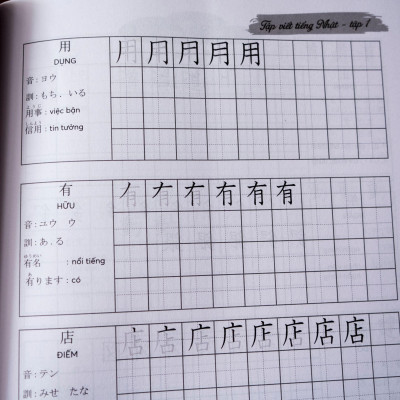 Tập viết tiếng Nhật - tập 1
用
DỤNG
音 : ヨウ
訓 : もち、いる
用事 : việc bận
信用 : tin tưởng
用
有
HỮU
音 : ユウ ウ
訓 : あ、る
ゆうめい
有名 : nổi tiếng
あ
有ります : có
有
店
ĐIẾM
音 : テン
訓 : みせ たな
店